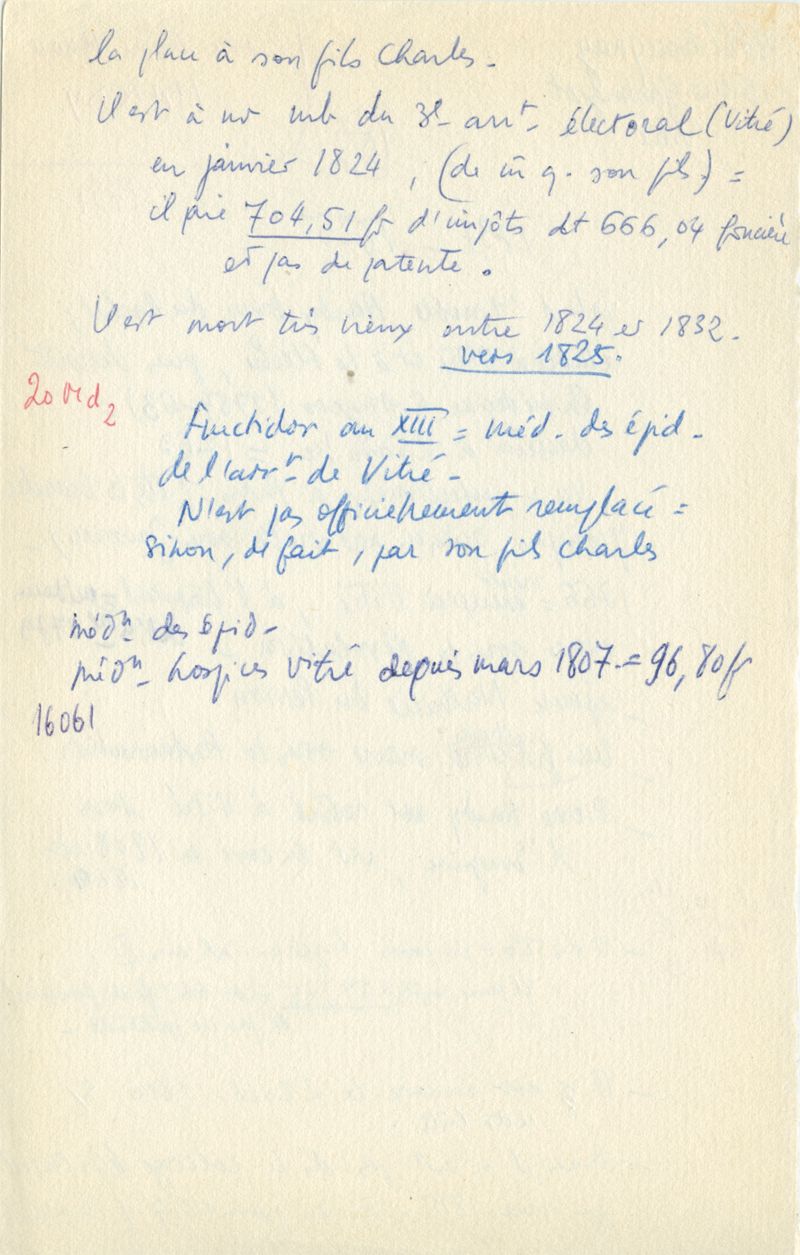 la place à son fils Charles.
Il est à nv mb du 3e arrt. électoral (Vitré)
en janvier 1824, (de m̄ q. son fils) =
il paie 704,51 fr d'impôts dt 666,04 foncière
et pas de patente.
Il est mort très vieux entre 1824 et 1832.
vers 1825.
20
2
Fructidor an XIII = méd. des épid.
de l'arrt. de Vitré.
N'est pas officiellement remplacé =
sinon, de fait, par son fils Charles
médn des épid.
médn. hospices Vitré depuis mars 1807. = 96,80 fr
16061